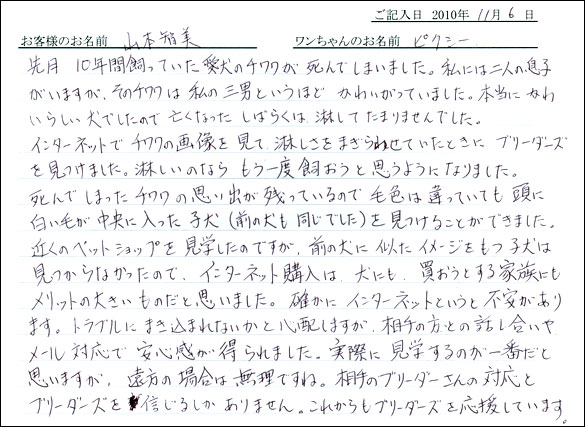 ご記入日 2010年 11月 6日
お客様のお名前 山本智美 ワンちゃんのお名前 ピクシー
先月 10年間飼っていた愛犬のチワワが 死んでしまいました。私には二人の息子
がいますが、そのチワワは 私の三男というほど かわいがっていました。本当に かわ
いらしい 犬でしたので 亡くなった しばらくは 淋してたまりませんでした。
インターネットで チワワの画像を見て、淋しさをまぎらわせていたときに ブリーダーズ
を見つけました。淋しいのなら もう一度飼おうと思うようになりました。
死んでしまったチワワの思い出が残っているので 毛色は違っていても 頭に
白い毛が 中央に入った子犬(前の犬も同じでした)を見つけることができました。
近くのペットショップを見学したのですが、前の犬に似たイメージをもつ子犬は
見つからなかったので、インターネット購入は、犬にも、買おうとする家族にも
メリットの大きいものだと思いました。確かに インターネットというと 不安があり
ます。トラブルに まき込まれないかと心配しますが、相手の方との話し合いや
メール対応で 安心感が得られました。実際に見学するのが一番だと
思いますが、遠方の場合は無理ですね。相手のブリーダーさんの対応と
ブリーダーズを 信じるしかありません。これからもブリーダーズを応援しています。